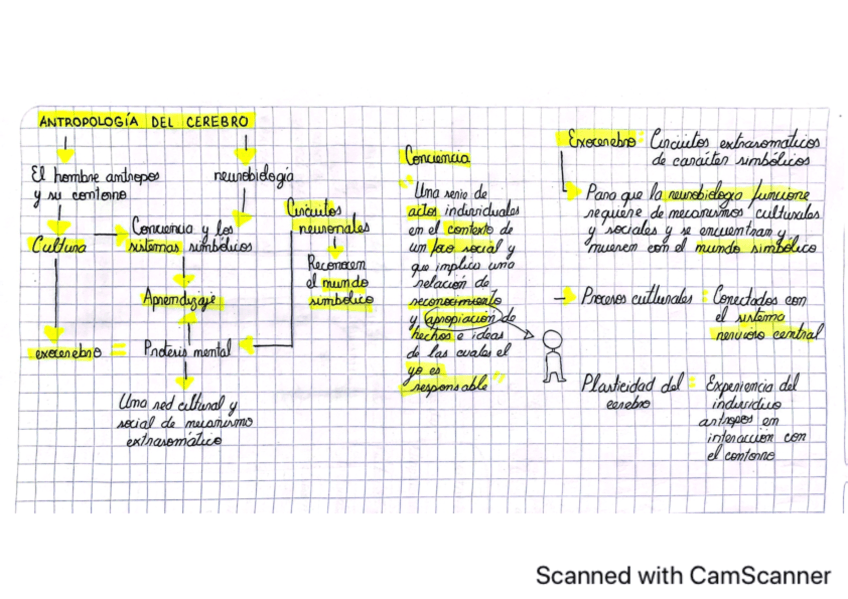 ANTROPOLOGÍA DEL CEREBRO
El hombre antropos
y su contorno
neurobiología
Cultura
Conciencia y los
sistemas simbólicos
Circuitos
neuronales
Reconocen
el mundo
simbólico
Aprendizaje
exocerebro = Prótesis mental
Una red cultural y
social de mecanismo
extrasomático
Conciencia
"Una serie de
actos individuales
en el contexto de
un foco social y
que implica una
relación de
reconocimiento
y apropiación de
hechos e ideas
de las cuales el
yo es
responsable"
Exocerebro: Circuitos extrasomáticos
de carácter simbólicos
Para que la neurobiologia funcione
requiere de mecanismos culturales
y sociales y se encuentran y
mueren con el mundo simbólico
Procesos cultturales: Conectados con
el sistema
nervioso central
Plasticidad del
cerebro
: Experiencia del
individuo
antropos en
interacción con
el contorno
Scanned with CamScanner